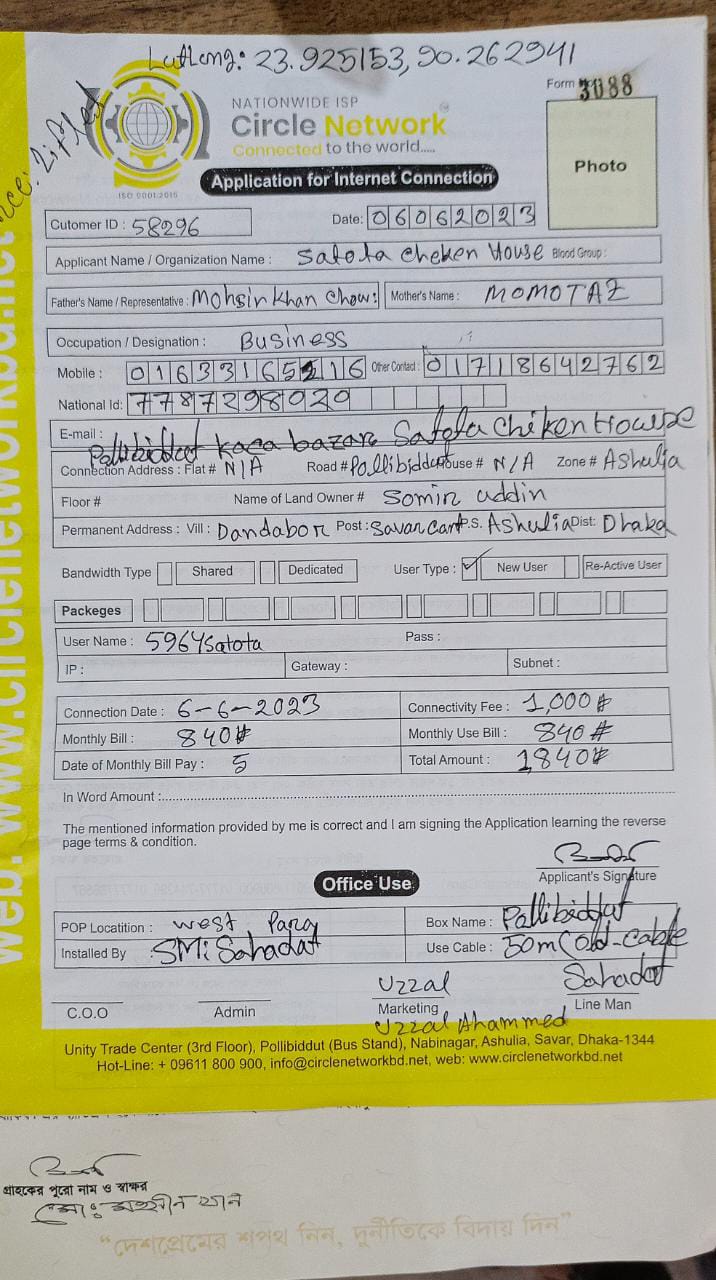 LatLong: 23.925153, 90.262941
Form 3088
NATIONWIDE ISP
Circle Network
Connected to the world.....
ISO 9001:2015
Photo
Application for Internet Connection
Cutomer ID : 58296
Date: 06062023
Applicant Name / Organization Name : Satota Cheken House Blood Group :
Father's Name / Representative : Mohsin Khan Chow: Mother's Name : MOMOTAZ
Occupation / Designation : Business
Mobile : 01633165216 Other Contact : 01718642762
National Id: 7787298020
E-mail :
Pallibiddut kaca bazar Satota Chiken House
Connection Address : Flat # N/A Road # Pollibiddut House # N/A Zone # Ashulia
Floor # Name of Land Owner # Somir uddin
Permanent Address : Vill : Dandabor Post : Savar Cant P.S. Ashulia Dist: Dhaka
Bandwidth Type Shared Dedicated User Type : ✓ New User Re-Active User
Packeges
User Name : 5964Satota Pass :
IP : Gateway : Subnet :
Connection Date : 6-6-2023 Connectivity Fee : 1,000#
Monthly Bill : 840# Monthly Use Bill : 840#
Date of Monthly Bill Pay : 5 Total Amount : 1,840#
In Word Amount :
The mentioned information provided by me is correct and I am signing the Application learning the reverse
page terms & condition.
Applicant's Signature
Office Use
POP Locatition : west Para Box Name : Pallibiddut
Installed By : SM: Sahadat Use Cable : 50m Cold-Cable
Uzzal Sahadot
C.O.O Admin Marketing Line Man
Uzzal Ahammed
Unity Trade Center (3rd Floor), Pollibiddut (Bus Stand), Nabinagar, Ashulia, Savar, Dhaka-1344
Hot-Line: + 09611 800 900, info@circlenetworkbd.net, web: www.circlenetworkbd.net
web: www.circlenetworkbd.net
গ্রাহকের পুরো নাম ও স্বাক্ষর
মোঃ মহসীন খান
“দেশপ্রেমের শপথ নিন, দুর্নীতিকে বিদায় দিন”